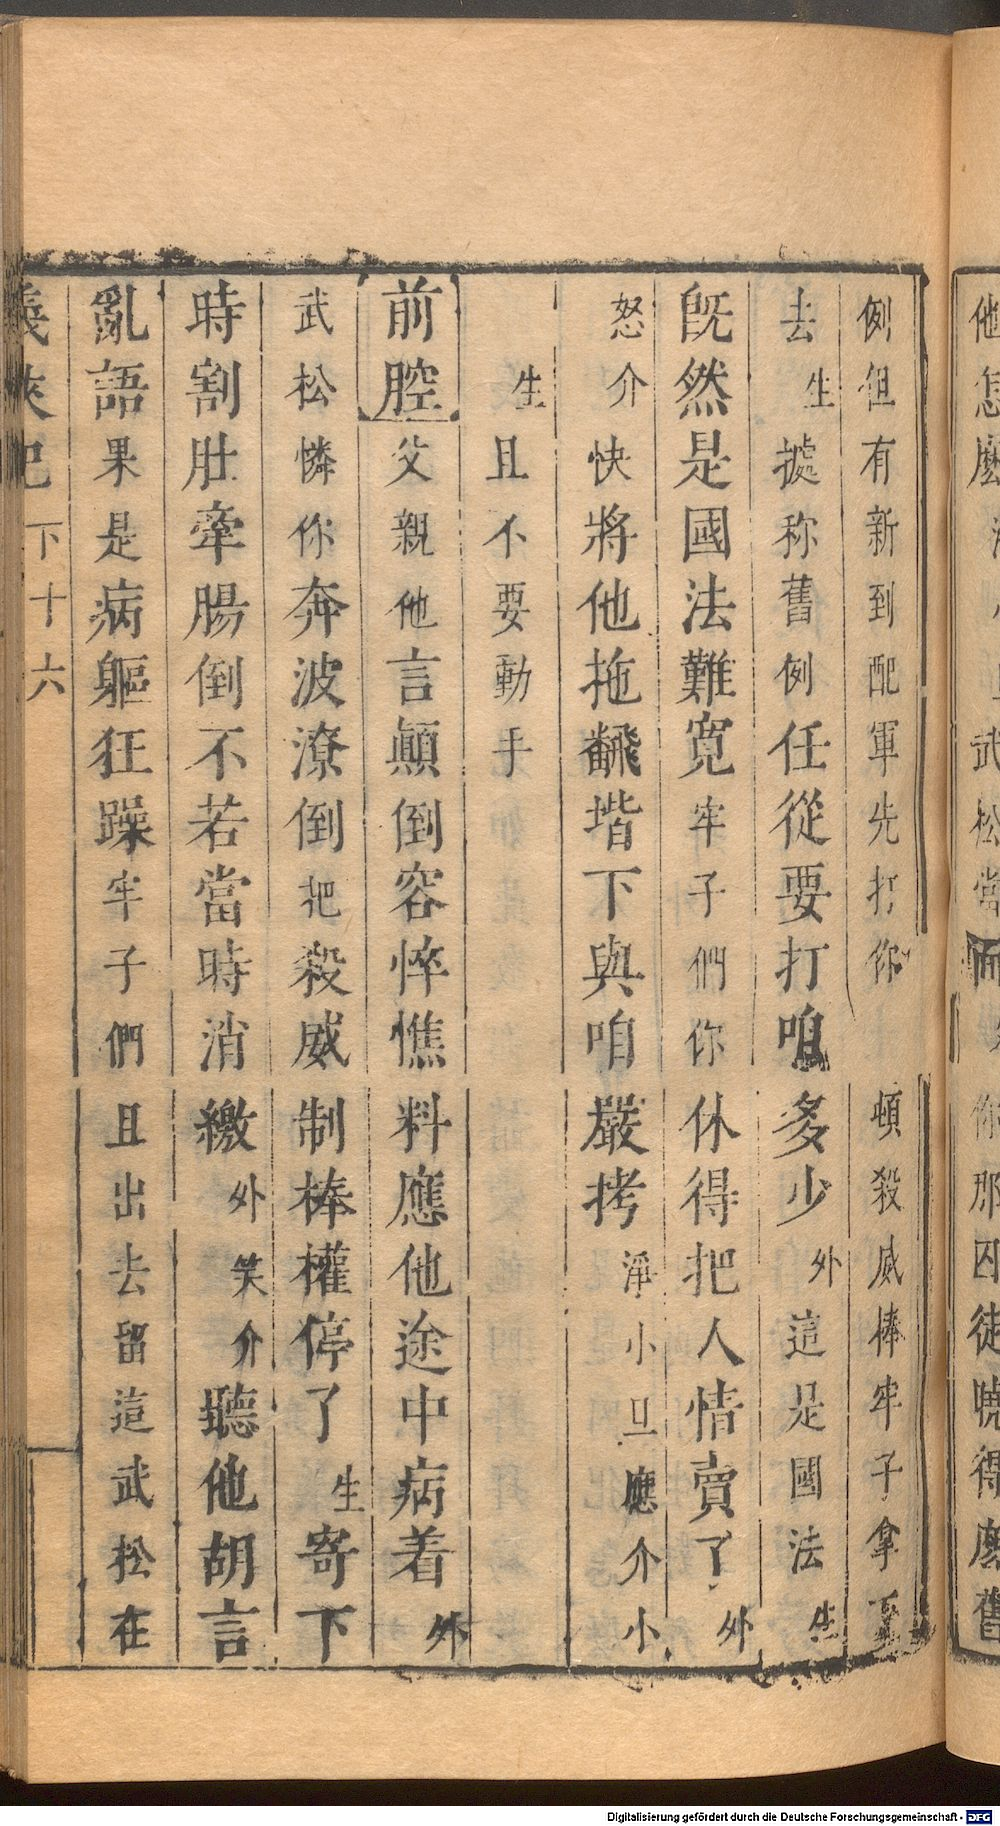 例但有新到配軍先打你頓殺威棒牢子拿下
去生據称舊例任從要打咱多少外這是國法生
旣然是國法難寛牢子們你休得把人情賣了外
怒介快將他拖翻堦下與咱嚴拷淨小旦應介小
生且不要動手
前腔父親他言顛倒容悴憔料應他途中病着外
武松憐你奔波潦倒把殺威制棒權停了生寄下
時割肚牽腸倒不若當時消繳外笑介聽他胡言
亂語果是病軀狂躁牢子們且出去留這武松在
義俠記 下 十六
他怎麽
武松當
你那囚徒曉得麽舊
Digitalisierung gefördert durch die Deutsche Forschungsgemeinschaft - DFG